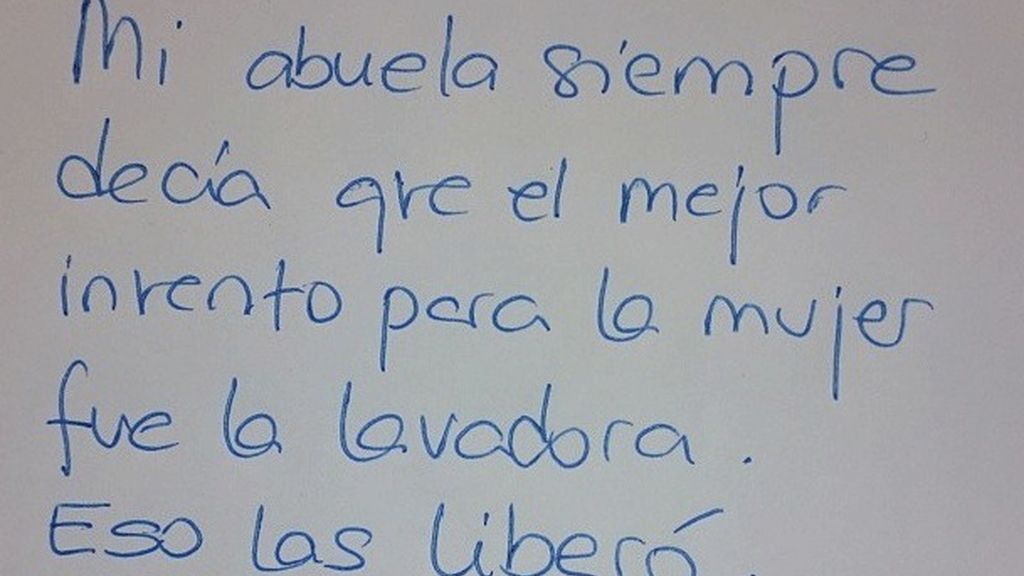 Mi abuela siempre
decía que el mejor
invento para la mujer
fue la lavadora.
Eso las liberó.